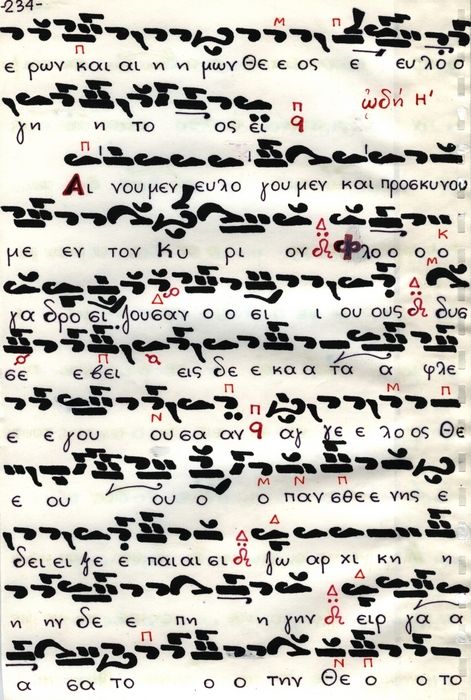 -234-
ε ρων και αι η η μων Θε ε ος ε ευ λο ο
γη η το ος εί ᾠδή Η'
Αι νουμεν ευλο γουμεν και προσκυνου
με εν τον Κυ ρι ον φλο ο ο ο
γα δρο σι ζουσαν ο ο σι ι ου ους δυσ
σε ε βει εις δε ε κα α τα α φλε
ε ε γου ου σα αν αγ γε ε λο ος Θε
ε ου ου ο ο παν σθε ε νης ε
δει ει ξε ε παι αι σι ζω αρ χι κη η
η ην δε ε πη η γην ειρ γα α
α σα το ο ο την Θε ο ο το